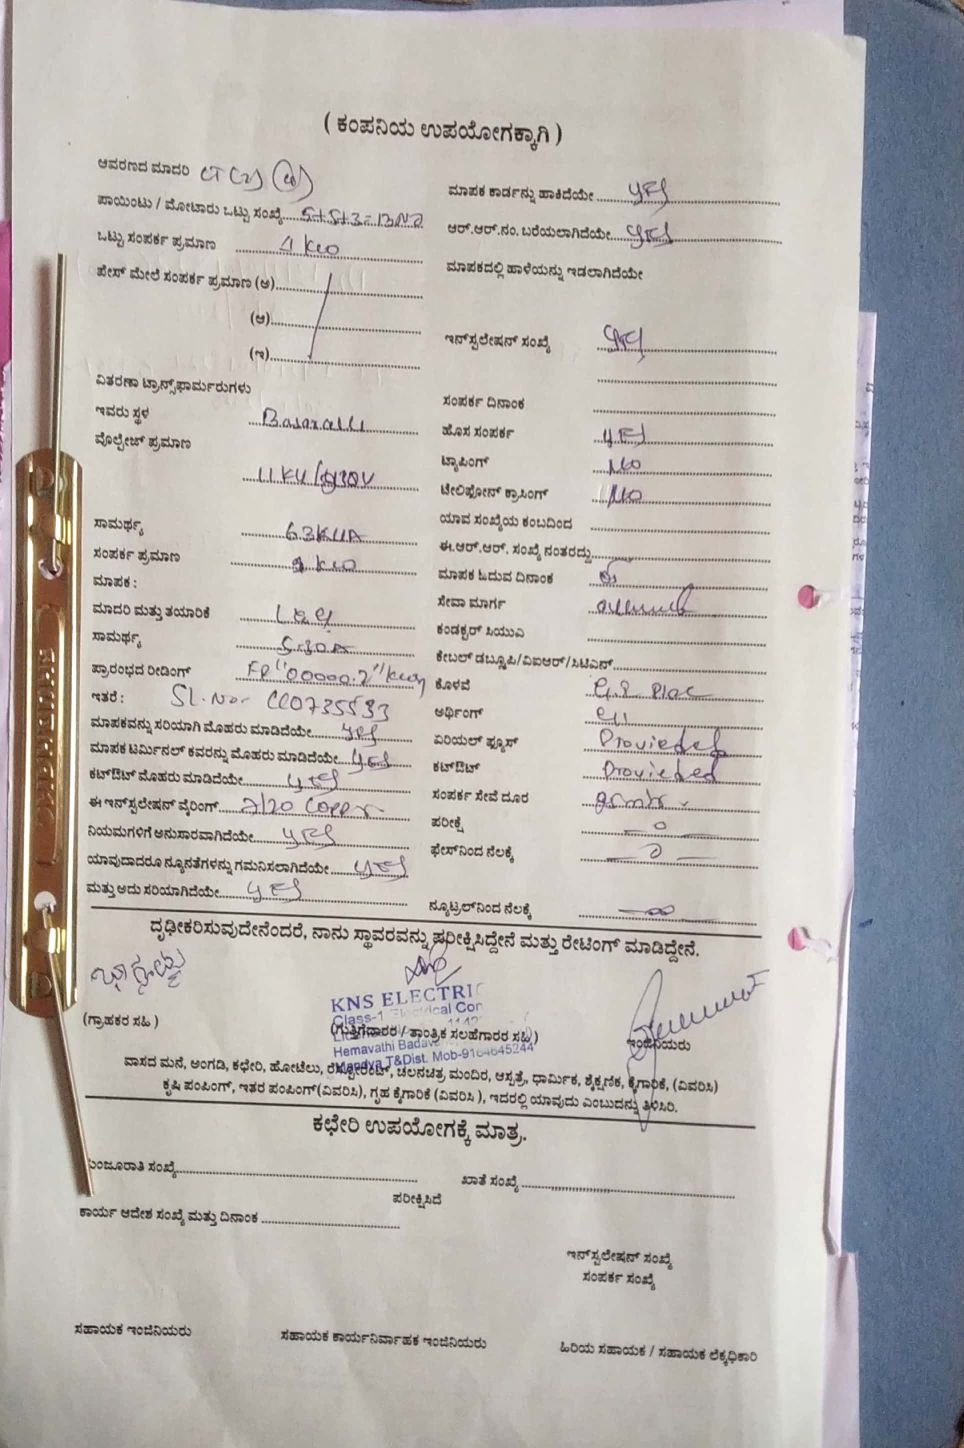 ( ಕಂಪನಿಯ ಉಪಯೋಗಕ್ಕಾಗಿ )
ಆವರಣದ ಮಾದರಿ
ಪಾಯಿಂಟು / ಮೋಟಾರು ಒಟ್ಟು ಸಂಖ್ಯೆ 5+5+3=13No
ಒಟ್ಟು ಸಂಪರ್ಕ ಪ್ರಮಾಣ 1 KW
ಪೇಸ್ ಮೇಲೆ ಸಂಪರ್ಕ ಪ್ರಮಾಣ (ಅ)
(ಆ)
(ಇ)
ವಿತರಣಾ ಟ್ರಾನ್ಸ್‌ಫಾರ್ಮರುಗಳು
ಇವರು ಸ್ಥಳ
ವೊಲ್ಟೇಜ್ ಪ್ರಮಾಣ
11 KV/
ಸಾಮರ್ಥ್ಯ 63KVA
ಸಂಪರ್ಕ ಪ್ರಮಾಣ 1 KW
ಮಾಪಕ :
ಮಾದರಿ ಮತ್ತು ತಯಾರಿಕೆ
ಸಾಮರ್ಥ್ಯ 5-30A
ಪ್ರಾರಂಭದ ರೀಡಿಂಗ್ FR "00000.2"
ಇತರೆ : Sl.No-
ಮಾಪಕವನ್ನು ಸರಿಯಾಗಿ ಮೊಹರು ಮಾಡಿದೆಯೇ yes
ಮಾಪಕ ಟರ್ಮಿನಲ್ ಕವರನ್ನು ಮೊಹರು ಮಾಡಿದೆಯೇ yes
ಕಟ್‌ಔಟ್ ಮೊಹರು ಮಾಡಿದೆಯೇ yes
ಈ ಇನ್‌ಸ್ಪಲೇಷನ್ ವೈರಿಂಗ್
ನಿಯಮಗಳಿಗೆ ಅನುಸಾರವಾಗಿದೆಯೇ yes
ಯಾವುದಾದರೂ ನ್ಯೂನತೆಗಳನ್ನು ಗಮನಿಸಲಾಗಿದೆಯೇ yes
ಮತ್ತು ಅದು ಸರಿಯಾಗಿದೆಯೇ yes
ಮಾಪಕ ಕಾರ್ಡನ್ನು ಹಾಕಿದೆಯೇ yes
ಆರ್.ಆರ್.ನಂ. ಬರೆಯಲಾಗಿದೆಯೇ yes
ಮಾಪಕದಲ್ಲಿ ಹಾಳೆಯನ್ನು ಇಡಲಾಗಿದೆಯೇ
ಇನ್‌ಸ್ಪಲೇಷನ್ ಸಂಖ್ಯೆ yes
ಸಂಪರ್ಕ ದಿನಾಂಕ
ಹೊಸ ಸಂಪರ್ಕ yes
ಟ್ಯಾಪಿಂಗ್ No
ಟೇಲಿಫೋನ್ ಕ್ರಾಸಿಂಗ್ No
ಯಾವ ಸಂಖ್ಯೆಯ ಕಂಬದಿಂದ
ಈ.ಆರ್.ಆರ್. ಸಂಖ್ಯೆ ನಂತರದ್ದು
ಮಾಪಕ ಓದುವ ದಿನಾಂಕ
ಸೇವಾ ಮಾರ್ಗ
ಕಂಡಕ್ಟರ್ ಸಿಯುವಿ
ಕೇಬಲ್ ಡಬ್ಲ್ಯೂಪಿ/ವಿಐಆರ್/ಸಿಟಿಎನ್
ಕೊಳವೆ
ಅರ್ಥಿಂಗ್
ಏರಿಯಲ್ ಫ್ಯೂಸ್
ಕಟ್‌ಔಟ್ Provieded
ಸಂಪರ್ಕ ಸೇವೆ ದೂರ
ಪರೀಕ್ಷೆ
ಫೇಸ್‌ನಿಂದ ನೆಲಕ್ಕೆ
ನ್ಯೂಟ್ರಲ್‌ನಿಂದ ನೆಲಕ್ಕೆ
ದೃಢೀಕರಿಸುವುದೇನೆಂದರೆ, ನಾನು ಸ್ಥಾವರವನ್ನು ಪರೀಕ್ಷಿಸಿದ್ದೇನೆ ಮತ್ತು ರೇಟಿಂಗ್ ಮಾಡಿದ್ದೇನೆ.
KNS ELECTRIC
Class-1
Hemavathi
Mandya T&Dist. Mob-9164645244
(ಗ್ರಾಹಕರ ಸಹಿ )
(ಗುತ್ತಿಗೆದಾರರ / ತಾಂತ್ರಿಕ ಸಲಹೆಗಾರರ ಸಹಿ )
ಇಂಜಿನಿಯರು
ವಾಸದ ಮನೆ, ಅಂಗಡಿ, ಕಛೇರಿ, ಹೋಟೆಲು, ರೆಸ್ಟೋರೆಂಟ್, ಚಲನಚಿತ್ರ ಮಂದಿರ, ಆಸ್ಪತ್ರೆ, ಧಾರ್ಮಿಕ, ಶೈಕ್ಷಣಿಕ, ಕೈಗಾರಿಕೆ, (ವಿವರಿಸಿ)
ಕೃಷಿ ಪಂಪಿಂಗ್, ಇತರ ಪಂಪಿಂಗ್(ವಿವರಿಸಿ), ಗೃಹ ಕೈಗಾರಿಕೆ (ವಿವರಿಸಿ ), ಇದರಲ್ಲಿ ಯಾವುದು ಎಂಬುದನ್ನು ತಿಳಿಸಿರಿ.
ಕಛೇರಿ ಉಪಯೋಗಕ್ಕೆ ಮಾತ್ರ.
ಮಂಜೂರಾತಿ ಸಂಖ್ಯೆ
ಖಾತೆ ಸಂಖ್ಯೆ
ಪರೀಕ್ಷಿಸಿದೆ
ಕಾರ್ಯ ಆದೇಶ ಸಂಖ್ಯೆ ಮತ್ತು ದಿನಾಂಕ
ಇನ್‌ಸ್ಪಲೇಷನ್ ಸಂಖ್ಯೆ
ಸಂಪರ್ಕ ಸಂಖ್ಯೆ
ಸಹಾಯಕ ಇಂಜಿನಿಯರು
ಸಹಾಯಕ ಕಾರ್ಯನಿರ್ವಾಹಕ ಇಂಜಿನಿಯರು
ಹಿರಿಯ ಸಹಾಯಕ / ಸಹಾಯಕ ಲೆಕ್ಕಧಿಕಾರಿ